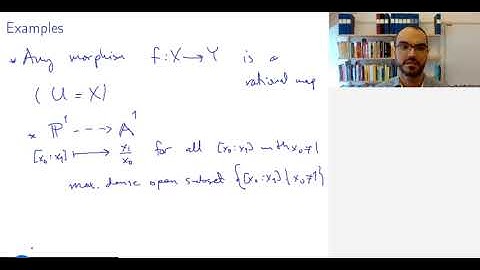 Examples
* Any morphism f: X → Y is a
rational map
( U = X )
* ℙ¹ ⇢ 𝔸¹
[x₀:x₁] ⟼ x₁/x₀ for all [x₀:x₁] with x₀≠1
max. dense open subset {[x₀:x₁] | x₀≠1}